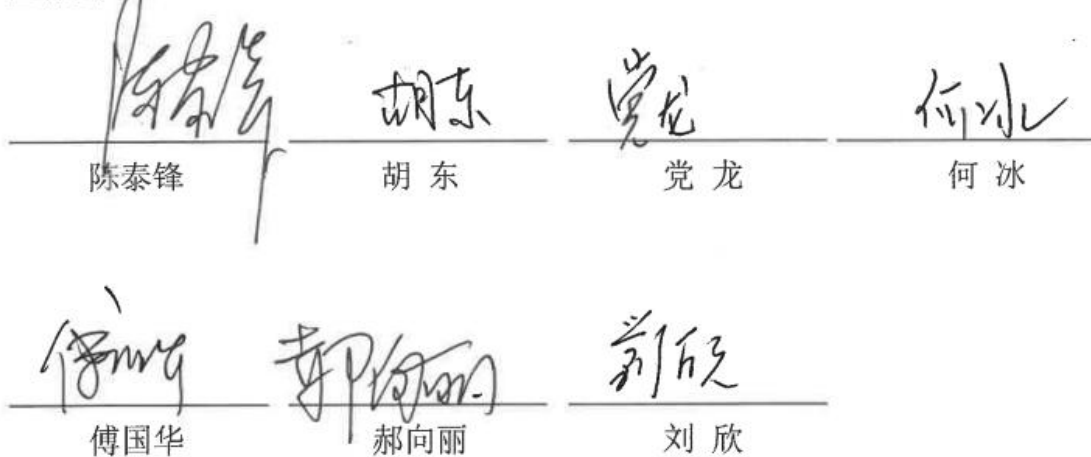 陈泰锋 胡东 党龙 何冰
陈泰锋 胡 东 党 龙 何 冰
傅国华 郝向丽 刘欣
傅国华 郝向丽 刘 欣